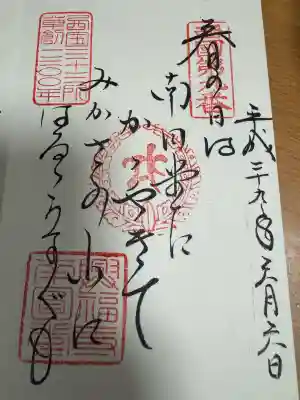 平成二十九年 月六日
西国第九番
春の日は
南円堂に
かゝやきて
みかさの山に
はるゝうすぐも
西国三十三所
草創一三〇〇年
興福寺
南円堂